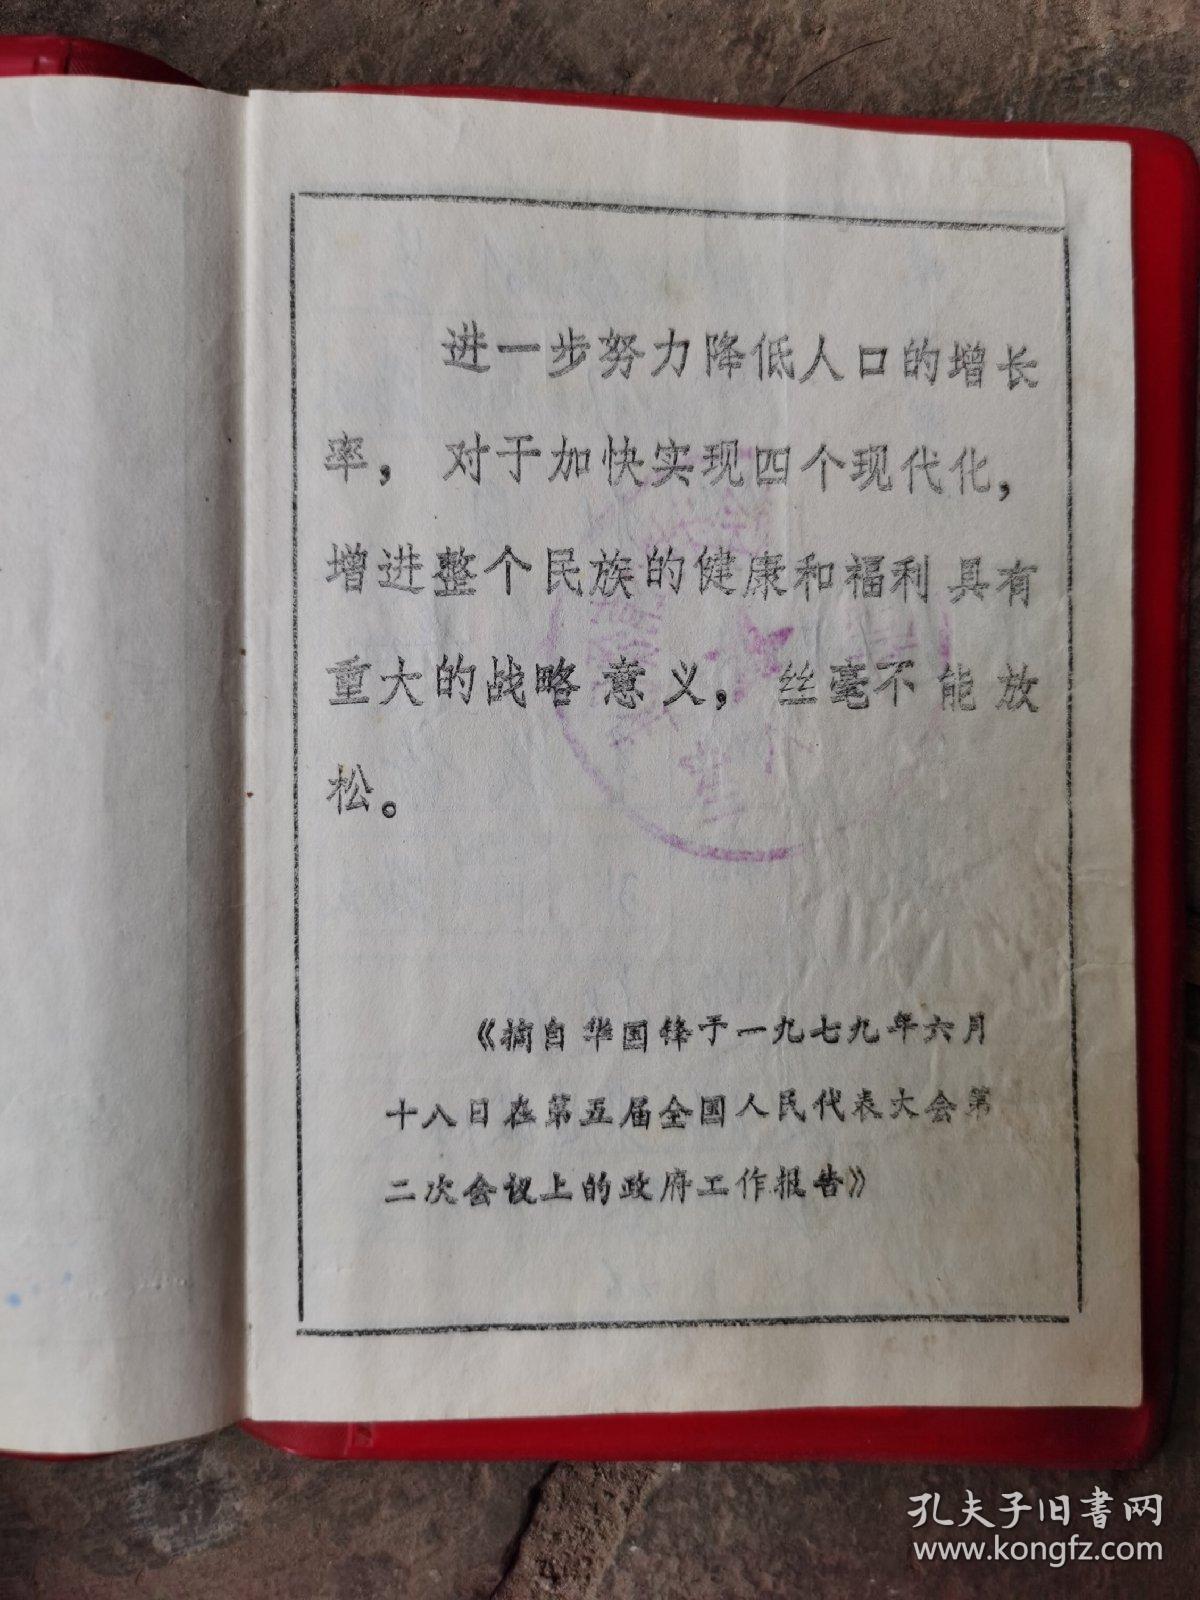 进一步努力降低人口的增长
率，对于加快实现四个现代化，
增进整个民族的健康和福利具有
重大的战略意义，丝毫不能放
松。
《摘自华国锋于一九七九年六月
十八日在第五届全国人民代表大会第
二次会议上的政府工作报告》
孔夫子旧书网
www.kongfz.com